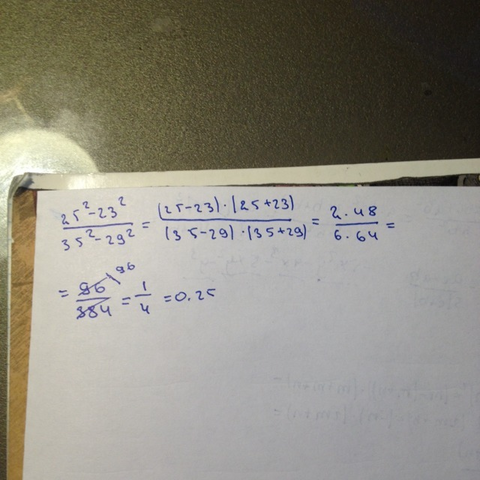 (25² - 23²)/(35² - 29²) = ((25-23)·(25+23))/((35-29)·(35+29)) = (2·48)/(6·64) =
= 96/384 \96 = 1/4 = 0.25